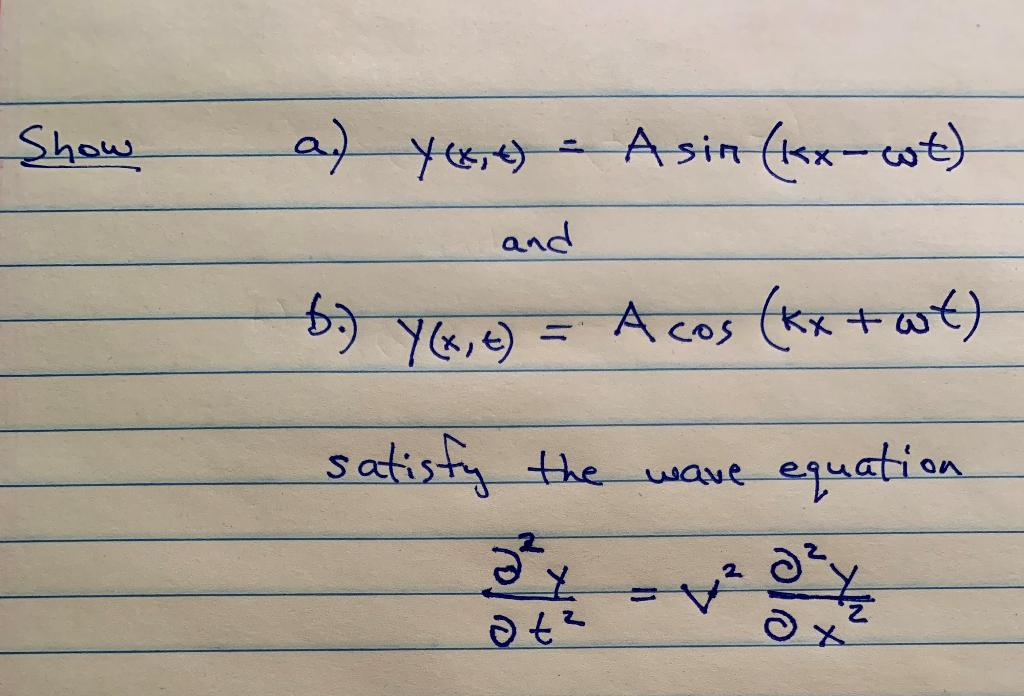 Show a.) y(x,t) = A sin (kx - ωt)
and
b.) y(x,t) = A cos (kx + ωt)
satisfy the wave equation
∂²y/∂t² = v² ∂²y/∂x²